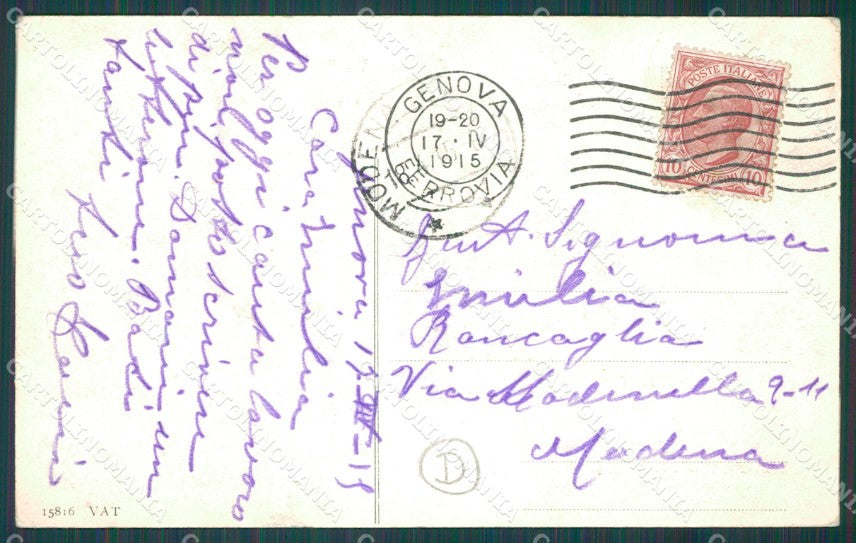 Genova 17-IV-15
Cara Emilia
Per oggi causa lavoro
non posso scrivere
di più. Domani un
letterone. Baci
tanti tuo
GENOVA
19-20
17 · IV
1915
FERROVIA
MODENA
POSTE ITALIANE
10 CENTESIMI 10
Gent. Signorina
Emilia
Roncaglia
Via Modenella 9-11
Modena
D
15816 VAT
CARTOLINOMANIA